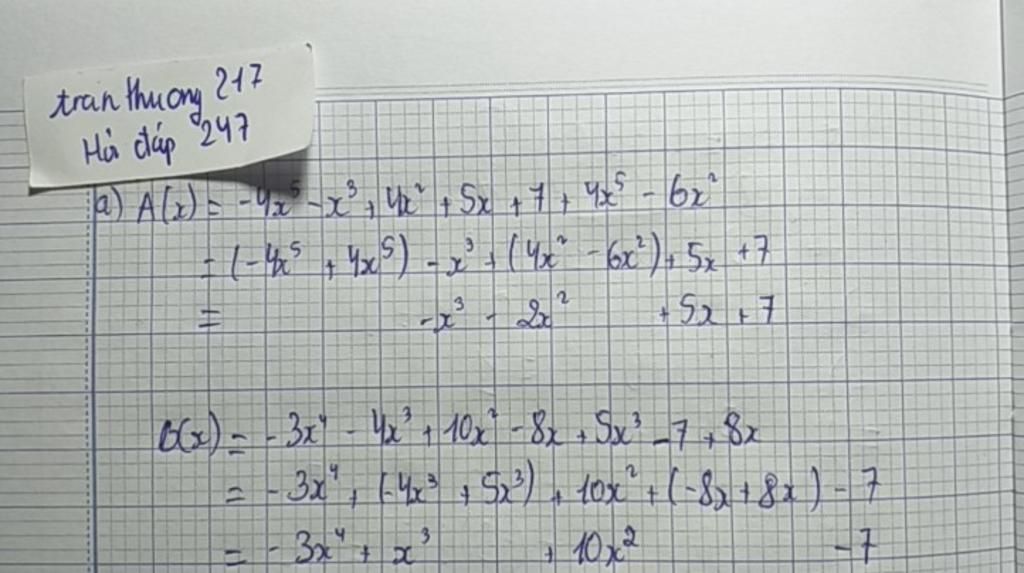 tran thuong 217
Hỏi đáp 247
a) A(x) = -4x⁵ - x³ + 4x² + 5x + 7 + 4x⁵ - 6x²
= (-4x⁵ + 4x⁵) - x³ + (4x² - 6x²) + 5x + 7
= -x³ - 2x² + 5x + 7
B(x) = -3x⁴ - 4x³ + 10x² - 8x + 5x³ - 7 + 8x
= -3x⁴ + (-4x³ + 5x³) + 10x² + (-8x + 8x) - 7
= -3x⁴ + x³ + 10x² - 7